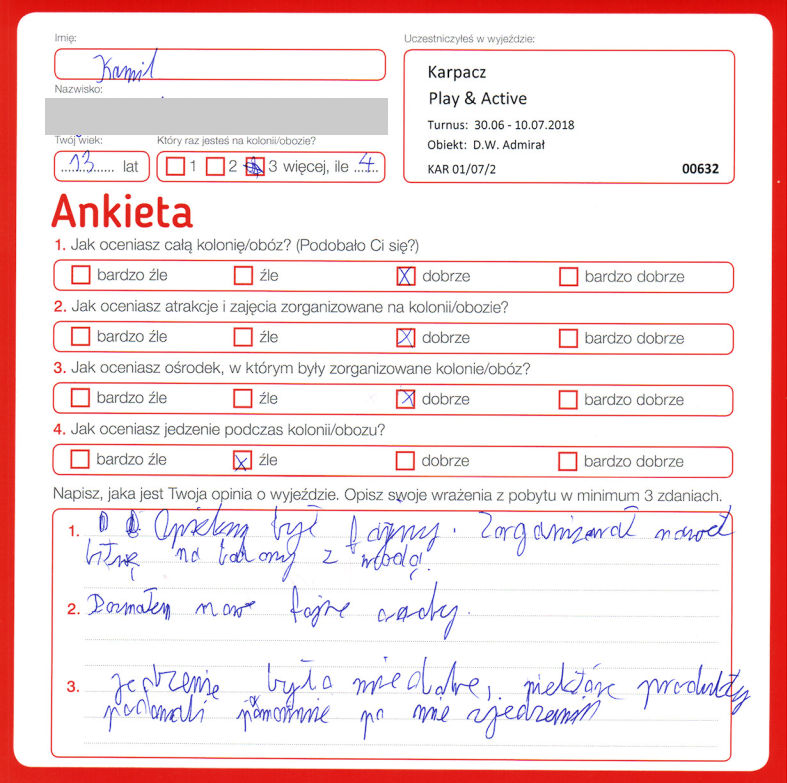 Imię:
Kamil
Nazwisko:
Twój wiek:
Który raz jesteś na kolonii/obozie?
13 lat
1 2 3 więcej, ile 4
Uczestniczyłeś w wyjeździe:
Karpacz
Play & Active
Turnus: 30.06 - 10.07.2018
Obiekt: D.W. Admirał
KAR 01/07/2 00632
Ankieta
1. Jak oceniasz całą kolonię/obóz? (Podobało Ci się?)
bardzo źle źle X dobrze bardzo dobrze
2. Jak oceniasz atrakcje i zajęcia zorganizowane na kolonii/obozie?
bardzo źle źle X dobrze bardzo dobrze
3. Jak oceniasz ośrodek, w którym były zorganizowane kolonie/obóz?
bardzo źle źle X dobrze bardzo dobrze
4. Jak oceniasz jedzenie podczas kolonii/obozu?
bardzo źle X źle dobrze bardzo dobrze
Napisz, jaka jest Twoja opinia o wyjeździe. Opisz swoje wrażenia z pobytu w minimum 3 zdaniach.
1. Opiekun był fajny. Zorganizował nawet
bitwę na balony z wodą.
2. Poznałem nowe fajne osoby.
3. jedzenie było niedobre, niektóre produkty
podawali ponownie po nie zjedzeniu